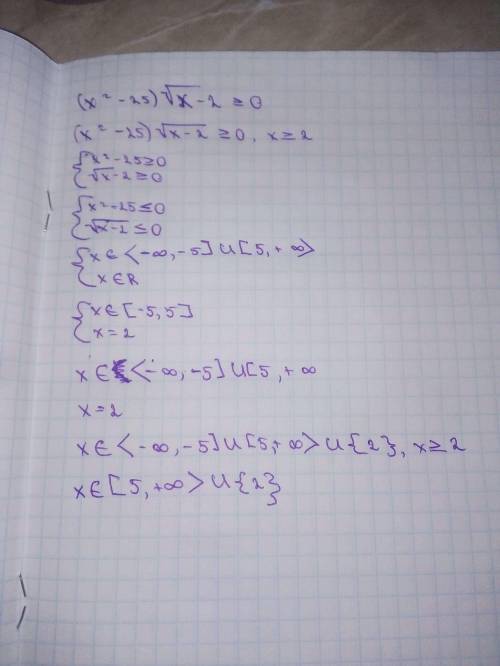 (x² - 25) √x - 2 ≥ 0
(x² - 25) √x-2 ≥ 0, x ≥ 2
{ x² - 25 ≥ 0
√x - 2 ≥ 0
{ x² - 25 ≤ 0
√x-2 ≤ 0
{ x ∈ <-∞, -5] U [5, +∞>
x ∈ R
{ x ∈ [-5, 5]
x = 2
x ∈ <-∞, -5] U [5, +∞
x = 2
x ∈ <-∞, -5] U [5, +∞> U {2}, x ≥ 2
x ∈ [5, +∞> U {2}